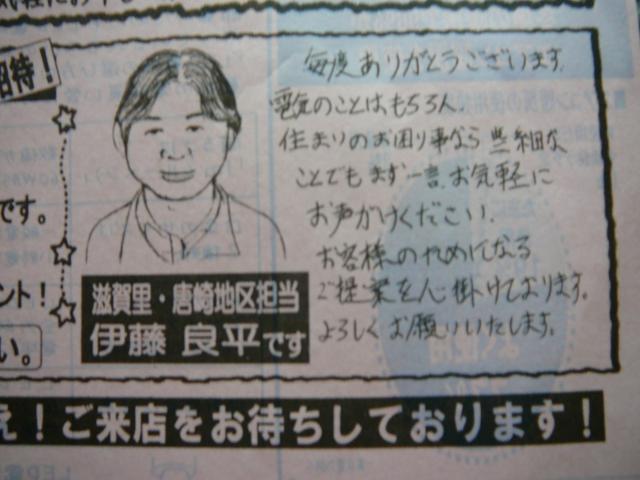 招待！
毎度ありがとうございます。
電気のことはもちろん
住まりのお困り事なら些細な
ことでもまず一言、お気軽に
お声がけください。
お客様のためになる
ご提案を心掛けております。
よろしくお願いいたします。
です。
ント！
い。
滋賀里・唐崎地区担当
伊藤 良平です
え！ご来店をお待ちしております！